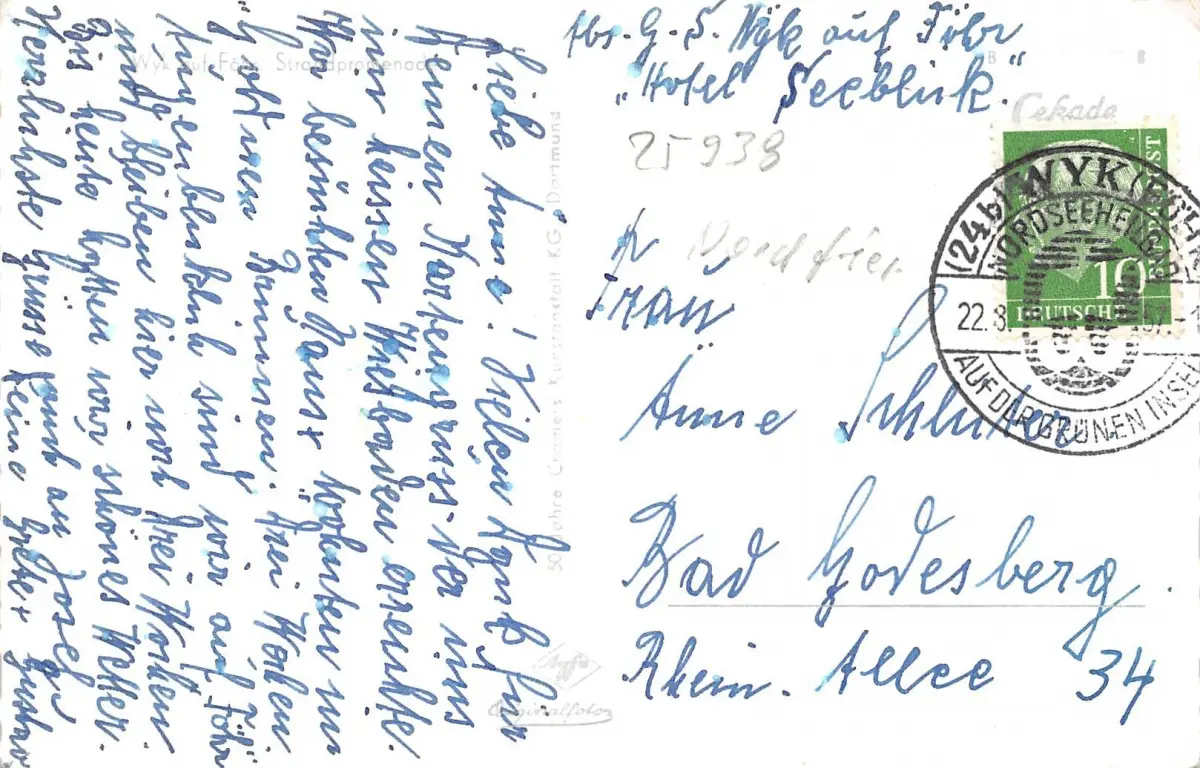 Abs. G. S. Wyk auf Föhr
„Hotel Seeblick."
Cekade
25938
Nordfries
Frau
Änne Schlüter
Bad Godesberg.
Rhein. Allee 34
Liebe Änne! Vielen Dank für
Deinen Kartengruss. Der uns
im heissen Wiesbaden erreichte.
Wir besuchten wohnten im
"Trei Wochen
Augenblicklich sind wir auf Föhr
und bleiben hier noch drei Wochen.
Bis heute hatten wir schönes Wetter.
Herzlichste Grüsse auch an Josef
Deine Grete + Gustav
Wyk auf Föhr, Strandpromenade
50 Jahre Cramers Kunstanstalt KG., Dortmund
Agfa
Originalfoto
(24b) WYK (FÖHR)
NORDSEEHEILBAD
22.8. 57.-1
AUF DER GRÜNEN INSEL
DEUTSCHE BUNDESPOST
10